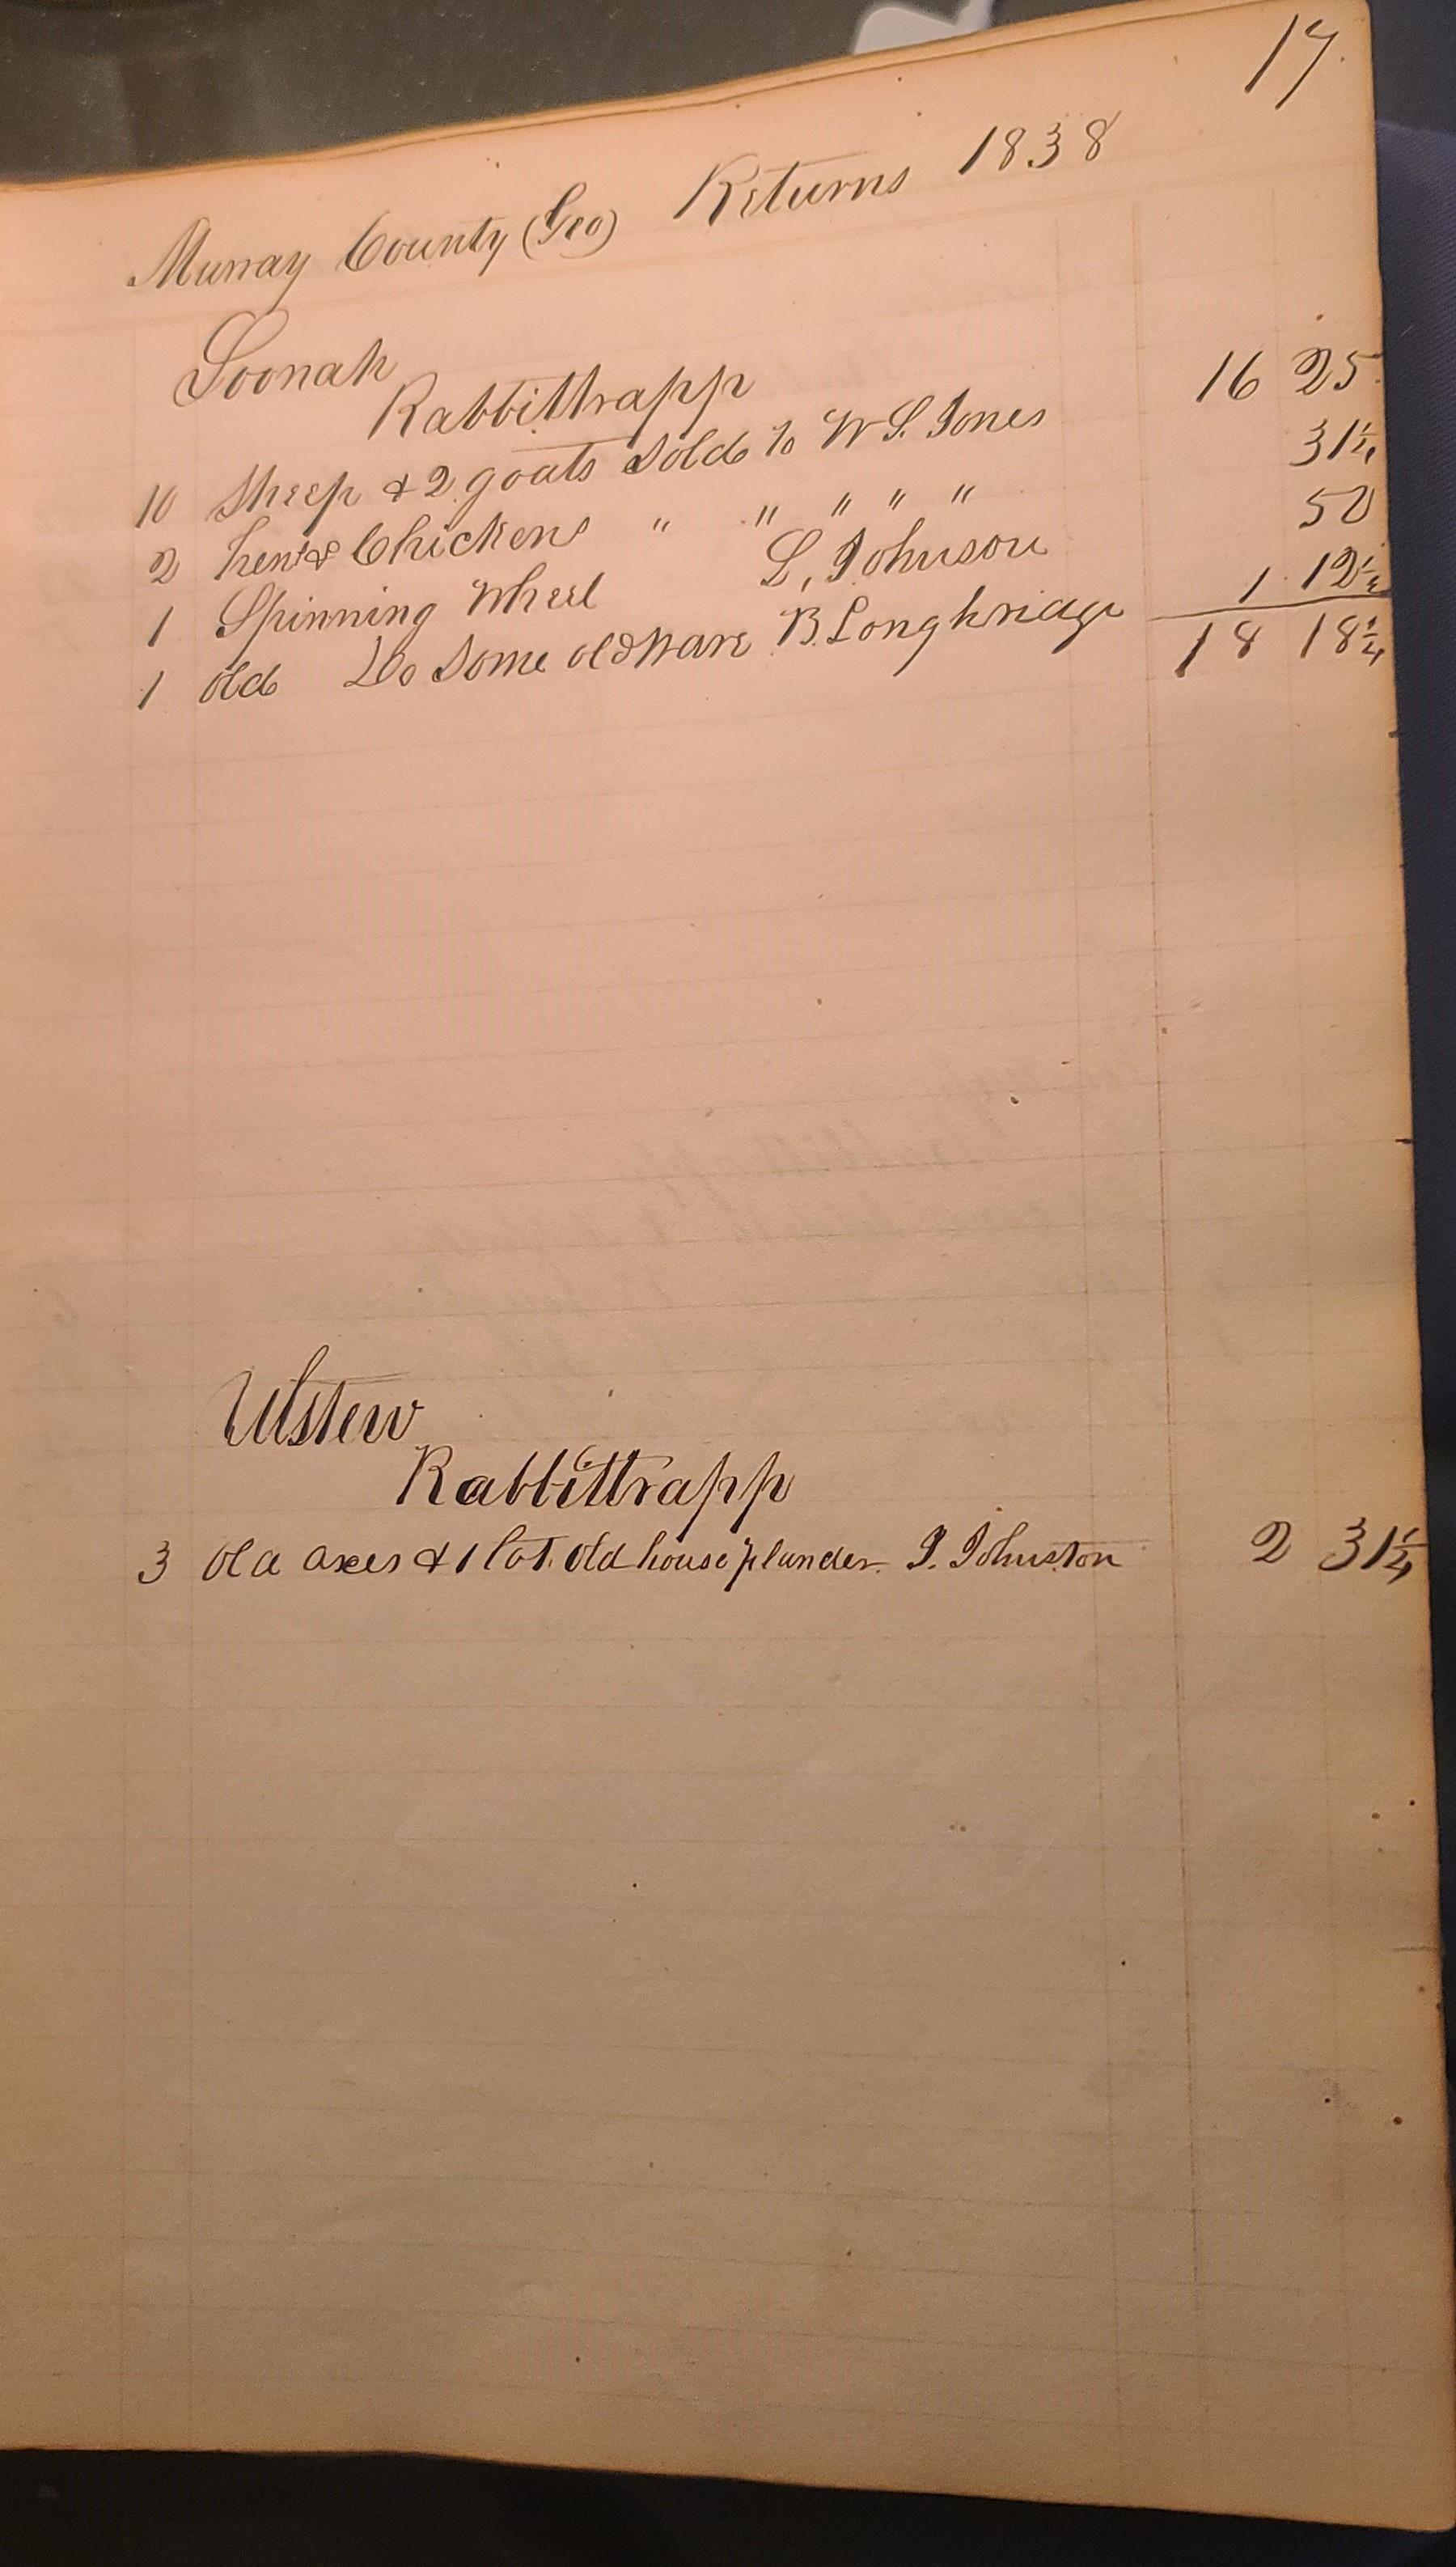 17.
Murray County (Geo) Returns 1838
Soonah
Rabbittrapp
10 Sheep & 2 goats Sold to W S. Jones 16 25
2 hens & Chickens " " " " " 31¼
1 Spinning Wheel L. Johnson 50
1 old Do Some old ware B. Longhridge 1 12½
18 18¾
Ulstew
Rabbittrapp
3 old axes & 1 lot. old house plunder. J. Johnston 2 31¼